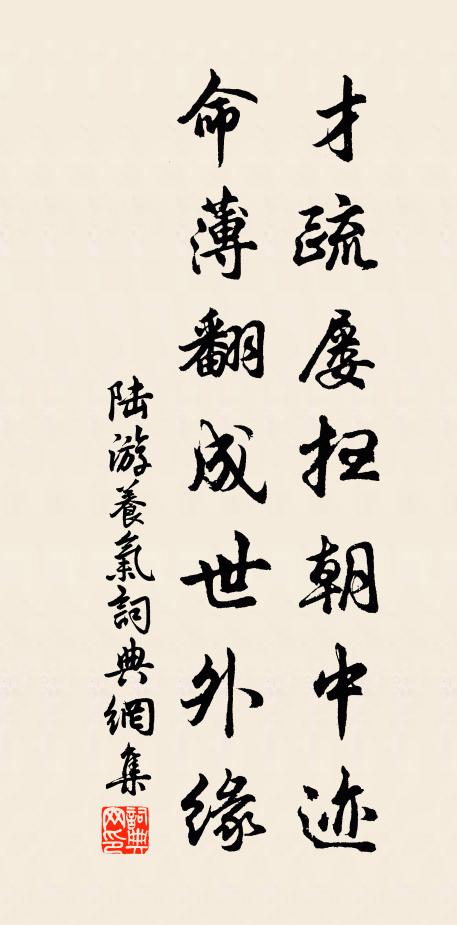 才疏屡扫朝中迹
命薄翻成世外緣
陆游養氣詞典網集
詞典网印